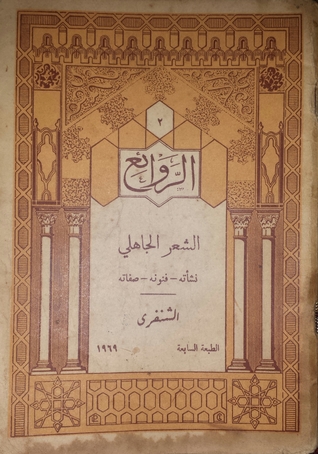 ٢
الروائع
الشعر الجاهلي
نشأته - فنونه - صفاته
الشنفرى
الطبعة السابعة ١٩٦٩